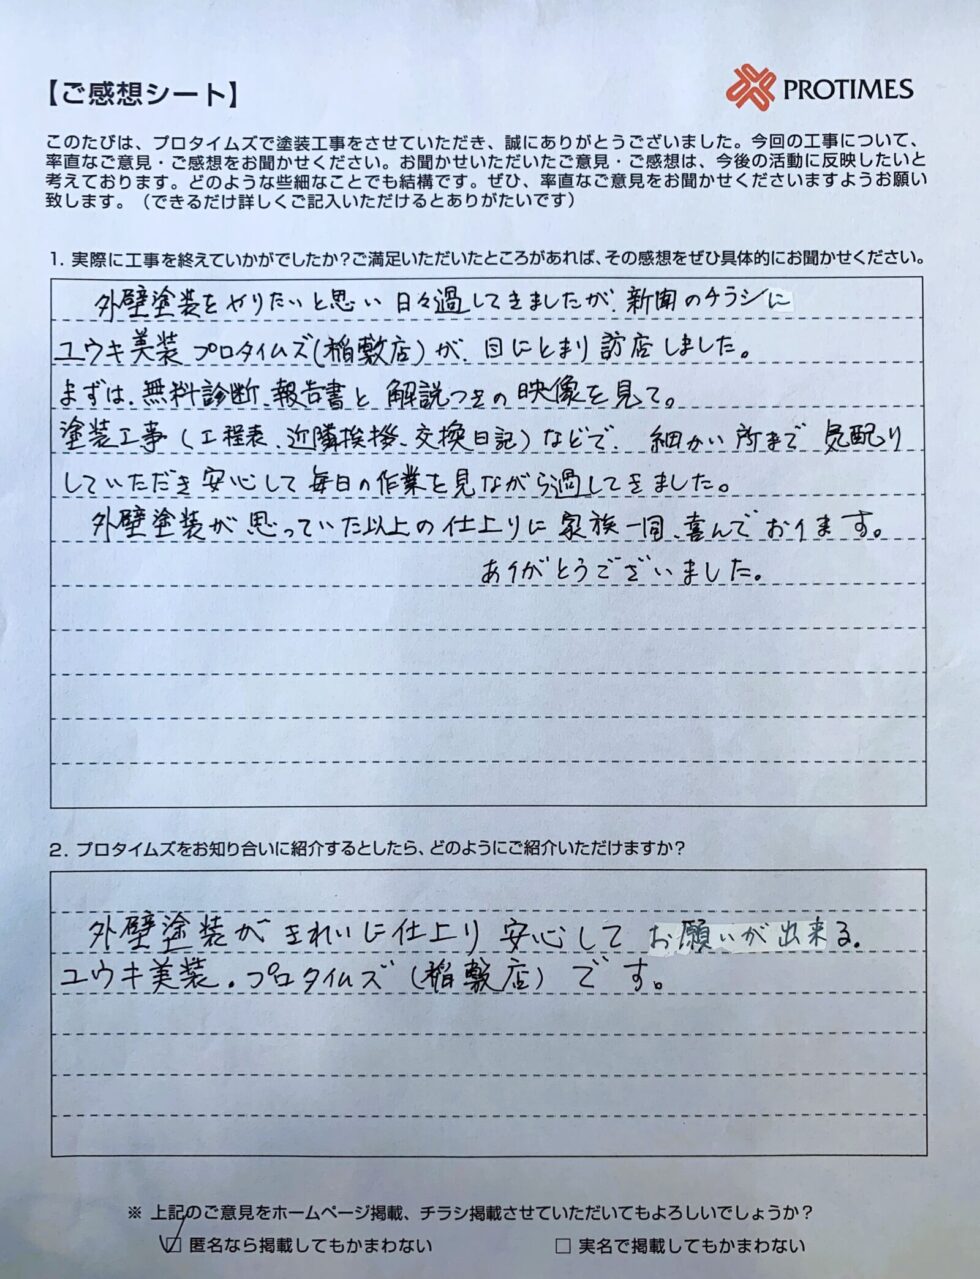 【ご感想シート】
PROTIMES
このたびは、プロタイムズで塗装工事をさせていただき、誠にありがとうございました。今回の工事について、
率直なご意見・ご感想をお聞かせください。お聞かせいただいたご意見・ご感想は、今後の活動に反映したいと
考えております。どのような些細なことでも結構です。ぜひ、率直なご意見をお聞かせくださいますようお願い
致します。（できるだけ詳しくご記入いただけるとありがたいです）
1. 実際に工事を終えていかがでしたか？ご満足いただいたところがあれば、その感想をぜひ具体的にお聞かせください。
外壁塗装をやりたいと思い日々過してきましたが、新聞のチラシに
ユウキ美装プロタイムズ(稲敷店)が、目にとまり訪店しました。
まずは、無料診断、報告書と解説つきの映像を見て。
塗装工事(工程表、近隣挨拶、交換日記)などで、細かい所まで気配り
していただき安心して毎日の作業を見ながら過してきました。
外壁塗装が思っていた以上の仕上りに家族一同、喜んでおります。
ありがとうございました。
2. プロタイムズをお知り合いに紹介するとしたら、どのようにご紹介いただけますか？
外壁塗装がきれいに仕上り安心してお願いが出来る。
ユウキ美装。プロタイムズ(稲敷店)です。
※ 上記のご意見をホームページ掲載、チラシ掲載させていただいてもよろしいでしょうか？
☑ 匿名なら掲載してもかまわない □ 実名で掲載してもかまわない